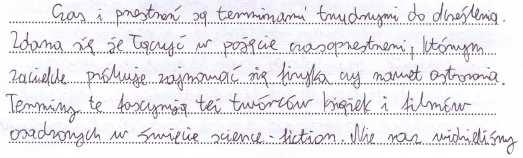 Czas i przestrzeń są terminami trudnymi do określenia.
Zdarza się że łączyść w pojęcie czasoprzestrzeni, którym
zaciekle próbuje zajmować się fizyka czy nawet astronomia.
Terminy te fascynują też twórców książek i filmów
osadzonych w świecie science-fiction. Nie raz widzieliśmy